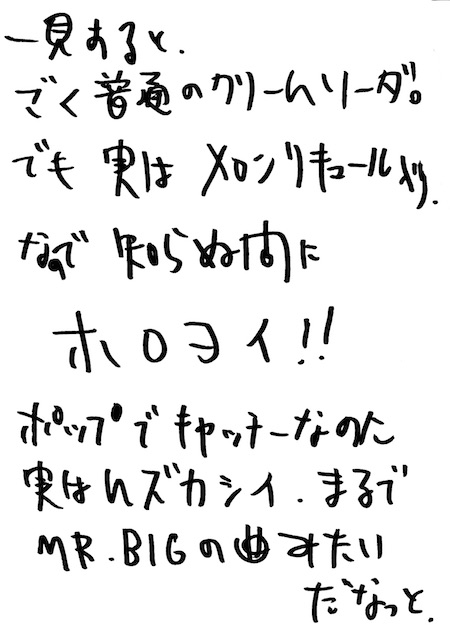 一見すると、
ごく普通のクリームソーダ。
でも実はメロンリキュール入り。
なので知らぬ間に
ホロヨイ!!
ポップでキャッチーなのに
実はムズカシイ、まるで
MR.BIGの曲みたい
だなっと。